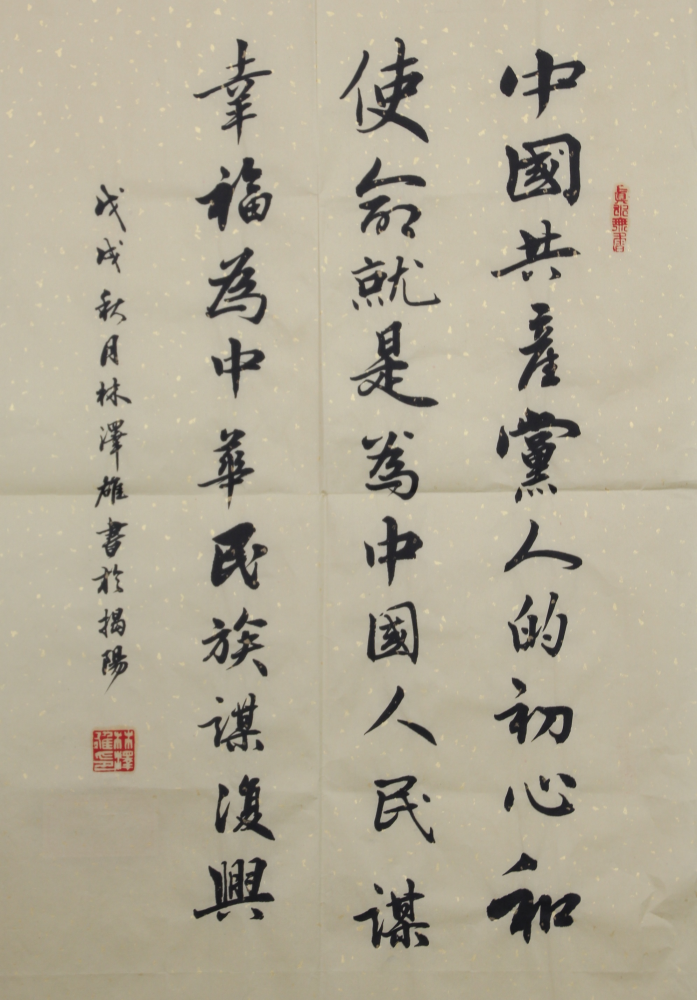 中國共產黨人的初心和
使命就是為中國人民謀
幸福為中華民族謀復興
戊戌秋月林澤雄書於揭陽
林澤雄印